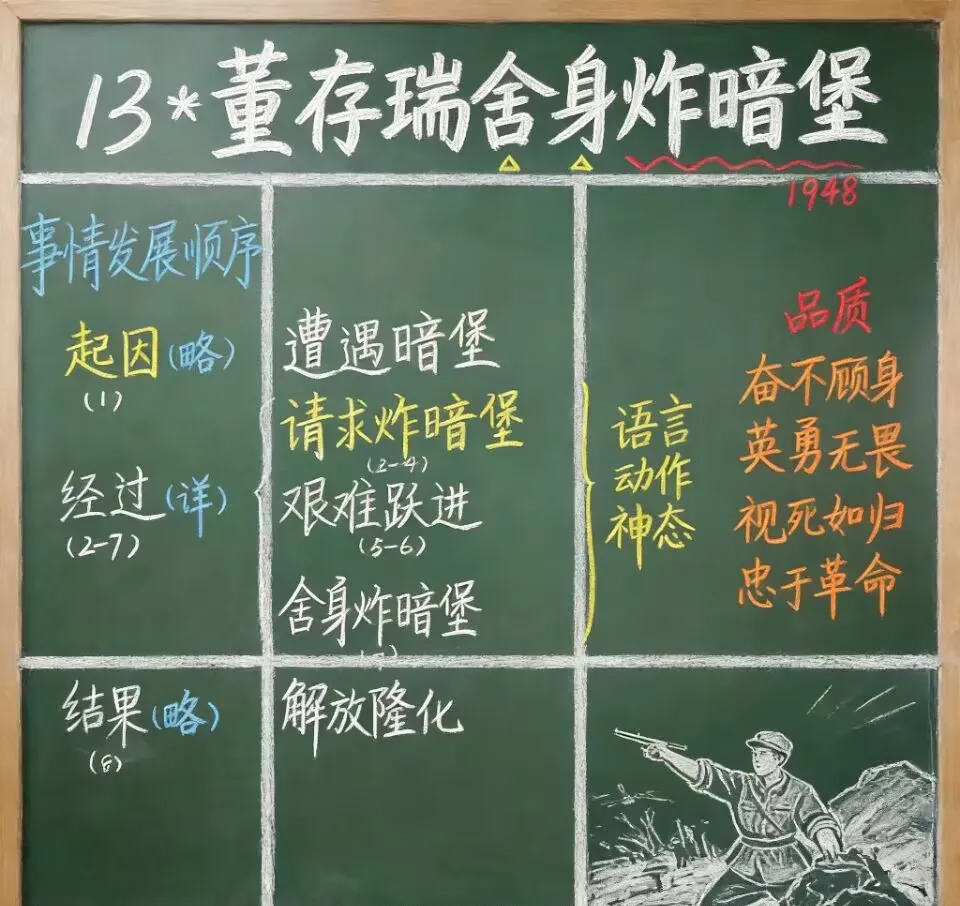 13*董存瑞舍身炸暗堡
1948
事情发展顺序
起因(略)
(1)
遭遇暗堡
请求炸暗堡
(2-4)
经过(详)
(2-7)
艰难跃进
(5-6)
舍身炸暗堡
语言
动作
神态
品质
奋不顾身
英勇无畏
视死如归
忠于革命
结果(略)
解放隆化